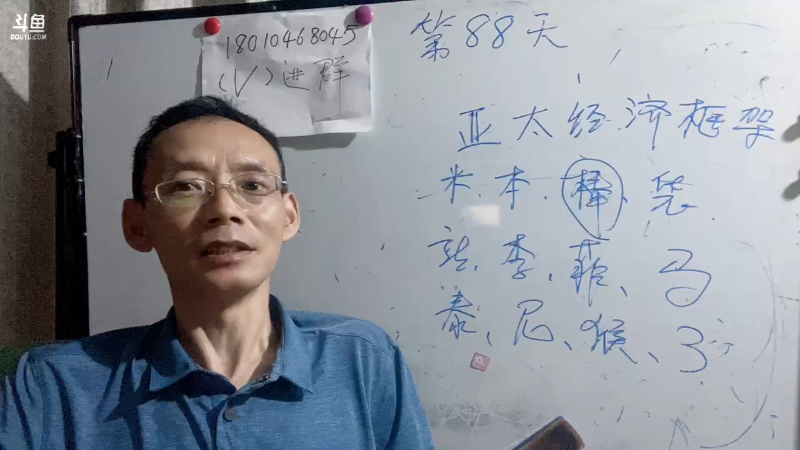 斗鱼
DOUYU.COM
18010468045
(V)进群
第88天
亚太经济框架
米、本、棒、袋
李、菲、马
泰、尼、猴、